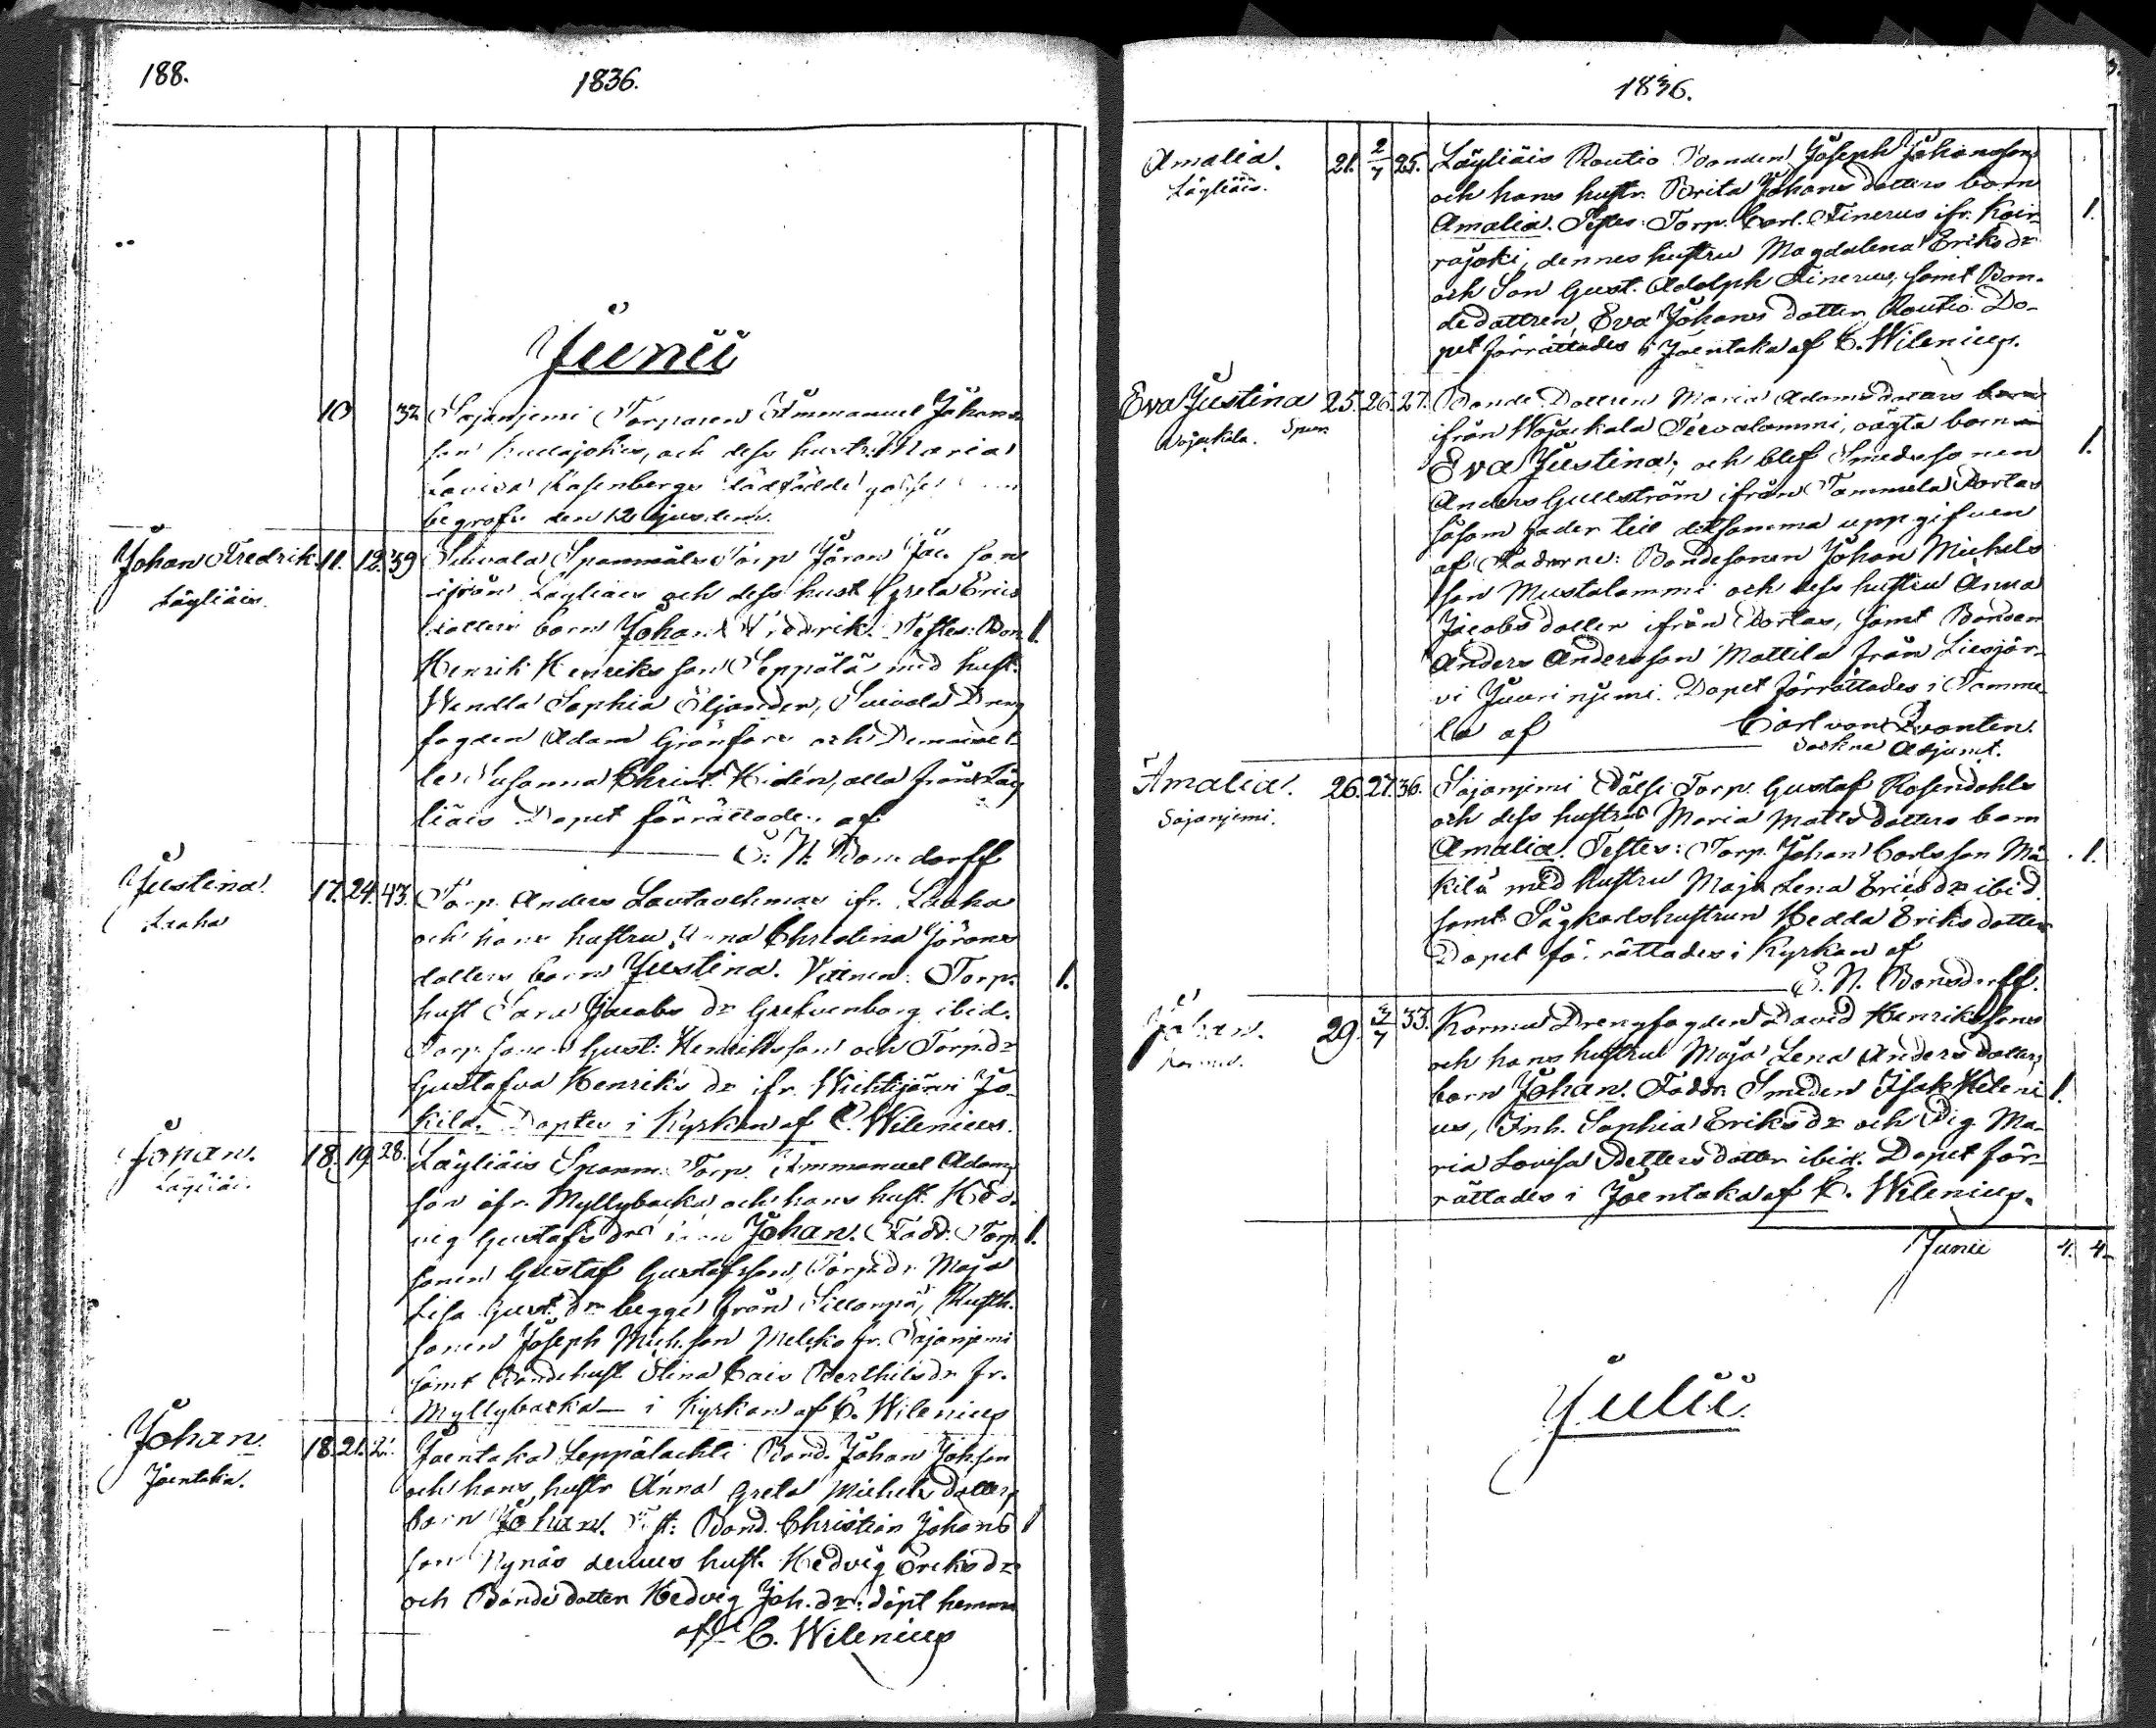 188.
1836.
Junii
10 32 Sajanjemi Torparen Immanuel Johans-
son Kullajokis, och dess hustr. Maria
Lovisa Rosenbergs dödfödde gosse
begrofs den 12 ejusdem.
Johan Fredrik. 11. 12. 39 Suivala Spanmåls Torp Jöran Jac. sons
Läyliäis. ifrån Läyliäis och dess hust Greta Erics
dotters barn Johan Fredrik. Testes: Bon. 1.
Henrik Henriksson Seppälä med hust.
Wendla Sophia Siljander, Suivala Dreng
fogden Adam Grönfors och Demoisel-
le Susanna Christ. Hidén, alla från Läy
liäis Dopet förrättades af
E. N. Bonsdorff
Justina. 17. 24. 43. Torp. Anders Lautavehmas ifr. Laaha
Laaha och hans hustru Anna Christina Jörans
dotters barn Justina. Vittnen: Torp. 1.
hust Sara Jacobs dr Grefvenberg ibid.
Torp. sonen Gust: Henriksson och Torp. dr
Gustafva Henriks dr ifr. Wichtijärvi Jo-
kila. Döptes i Kyrkan af C. Wilenius.
Johan. 18. 19. 28. Läyliäis Spanm. Torp. Immanuel Adams
Läyliäis. son ifr. Myllybacka och hans hust. Hed-
vig Gustafs drs barn Johan. Fadd: Torp. 1.
sonen Gustaf Gustafsson, Torp. dr Maja
Lisa Gust. dr begge från Sillanpä, Rusth.
sonen Joseph Mich. son Melsko fr. Sajanjemi
samt Bondehust Stina Cais Berthils dr fr.
Myllybacka — i Kyrkan af C. Wilenius
Johan. 18. 21. Joentaka Leppälachti Bond. Johan Joh. son
Joentaka. och hans hustr Anna Greta Michels dotters
barn Johan. Test: Bond. Christian Johans 1
son Nynäs dennes hust. Hedvig Eriks dr
och Bonde dotter Hedvig Joh. dr: döpt hemma
af C. Wilenius
1836.
Amalia. 21. 2/7 25. Läyliäis Rautio Bonden Joseph Johanssons
Läyliäis. och hans hustr. Brita Johans dotters barn
Amalia. Testes: Torp. Carl. Finerus ifr. Koir- 1.
rajoki, dennes hustru Magdalena Eriks dr
och Son Gust. Adolph Finerus, samt Bon-
dedottren, Eva Johans dotter Rautio. Do-
pet förrättades i Joentaka af C. Wilenius.
Eva Justina 25. 26. 27. Bonde Dottren Maria Adams dotters barn
Wojackala. Spur. ifrån Wojackala Tervalammi, oägta barn
Eva Justina; och blef Smedssonen 1.
Anders Gullström ifrån Tammela Portas
såsom fader till detsamma uppgifven
af Fadderne: Bondesonen Johan Michels
son Mustalammi och dess hustru Anna
Jacobs dotter ifrån Portas, samt Bonden
Anders Andersson Mattila från Liesjär-
vi Juurinjemi. Dopet förrättades i Tamme-
la af Carl von Qvanten.
Sockne Adjunct.
Amalia. 26. 27. 36. Sajanjemi Pälsi Torp. Gustaf Rosendahls
Sajanjemi. och dess hustrus Maria Matts dotters barn
Amalia. Testes: Torp. Johan Carlsson Mä- 1.
kilä med hustru Maja Lena Erics dr ibid.
samt Sågkarlshustrun Hedda Eriks dotter
Dopet förrättades i Kyrkan af
E. N. Bonsdorff.
Johan. 29. 3/7 33. Kormu Drengfogden David Henrikssons
Kormu. och hans hustrus Maja Lena Anders dotters
barn Johan. Faddr. Smeden Isak Heleni 1.
us, Inh. Sophia Eriks dr och Pig. Ma-
ria Lovisa Petters dotter ibid. Dopet för-
rättades i Joentaka af C. Wilenius.
Junii 4. 4
Julii.